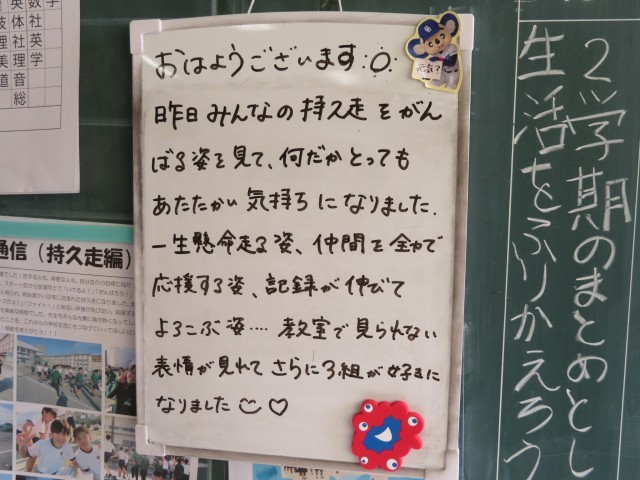 おはようございます
元気?
昨日 みんなの 持久走 をがん
ばる姿を見て、何だかとっても
あたたかい 気持ちになりました.
一生懸命走る姿、仲間を全力で
応援する姿、記録が伸びて
よろこぶ姿‥‥ 教室で見られない
表情が見れて さらに3組が好きに
なりました
2学期のまとめとし
生活をふりかえろう
通信（持久走編）
英 数 学
技 体 社
理 社 英
美 理 学
道 音
総